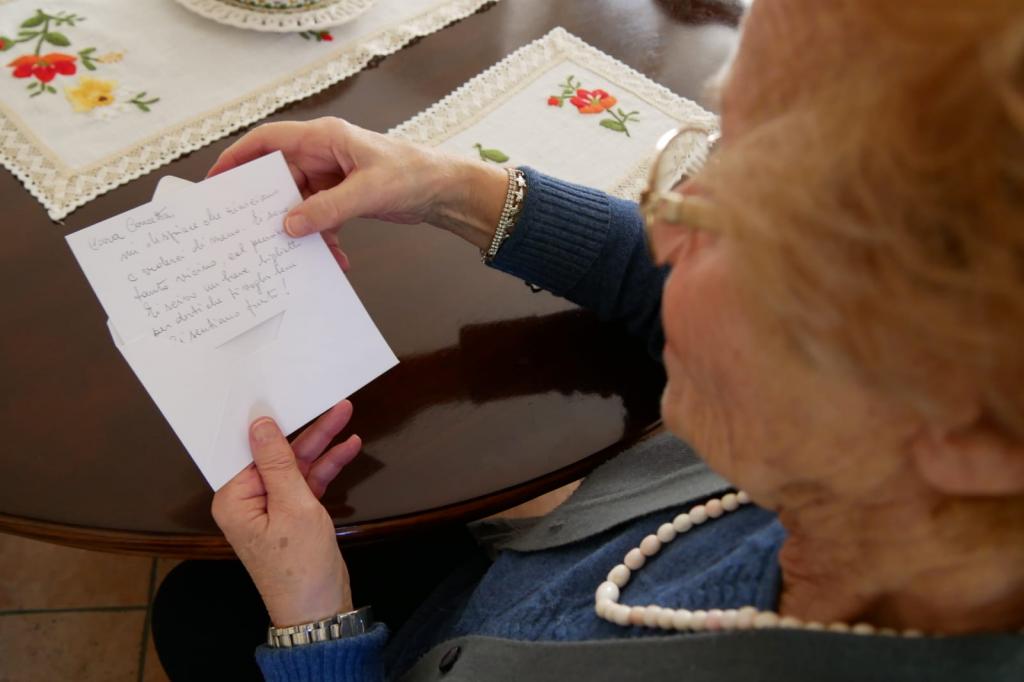 Cara Concetta,
mi dispiace che riusciamo
a vederci di meno. Io sono
tanto vicino, ed
Ti scrivo un breve biglietto
per dirti che ti voglio bene
Ci sentiamo presto!